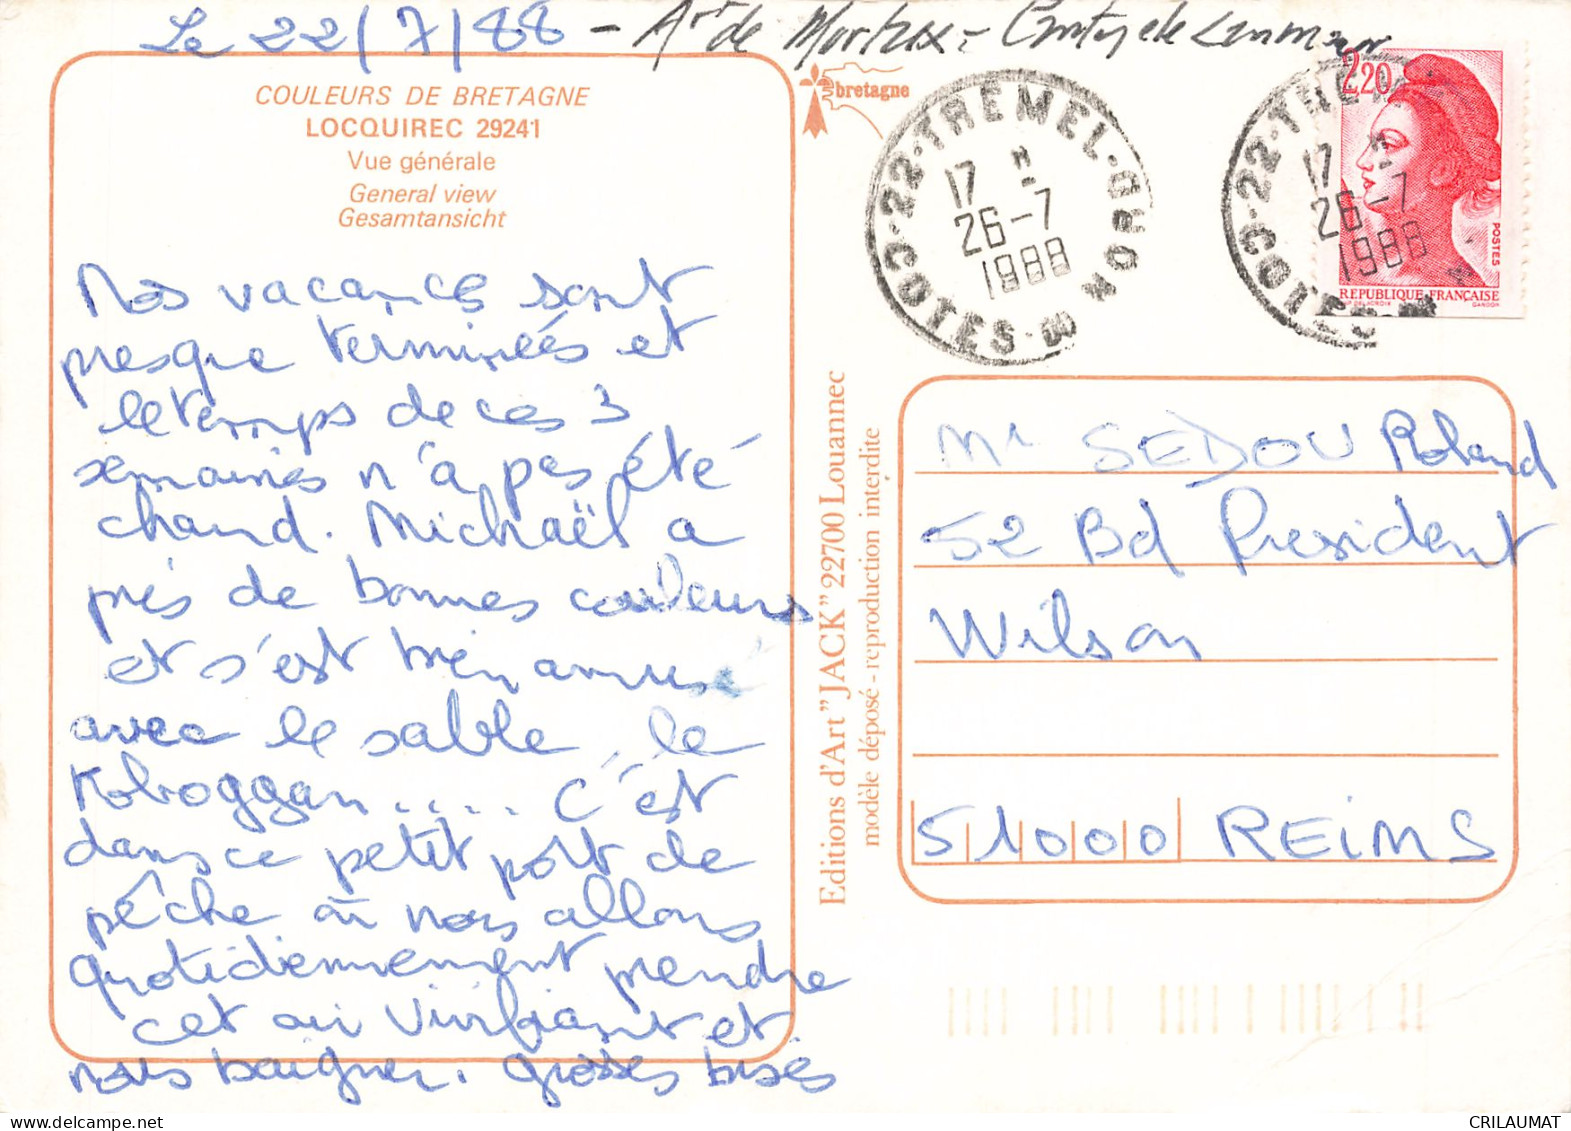 Le 22/7/88 - Arr de Morlaix - Canton de Lanmeur
COULEURS DE BRETAGNE
LOCQUIREC 29241
Vue générale
General view
Gesamtansicht
Nos vacances sont
presque terminées et
le temps de ces 3
semaines n'a pas été
chaud. Michaël a
pris de bonnes couleurs
et s'est bien amusé
avec le sable, le
toboggan..... C'est
dans ce petit port de
pêche où nous allons
quotidiennement prendre
cet air vivifiant et
nous baigner. grosses bises
bretagne
22·TREMEL·
COTES-DU-NORD
17 H
26-7
1988
22·TREMEL
COTES-DU
17 H
26-7
1988
2,20
POSTES
REPUBLIQUE FRANÇAISE
D'AP DELACROIX GANDON
Editions d'Art "JACK" 22700 Louannec
modèle déposé - reproduction interdite
Mr SEDOU Roland
52 Bd President
Wilson
51000 REIMS
CRILAUMAT